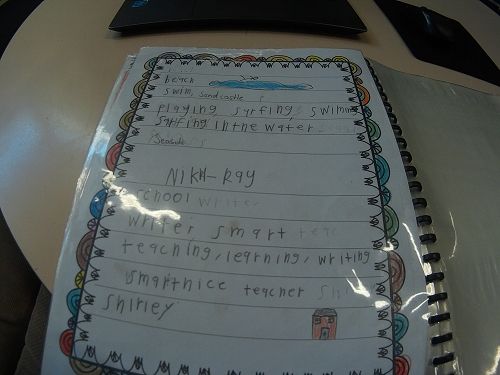 beach
swim, sandcastle
playing, surfing, swimm
surfing in the water
Seaside
Nikki-Ray
school writer
writer smart teac
teaching, learning, writing
smart nice teacher
Shirley